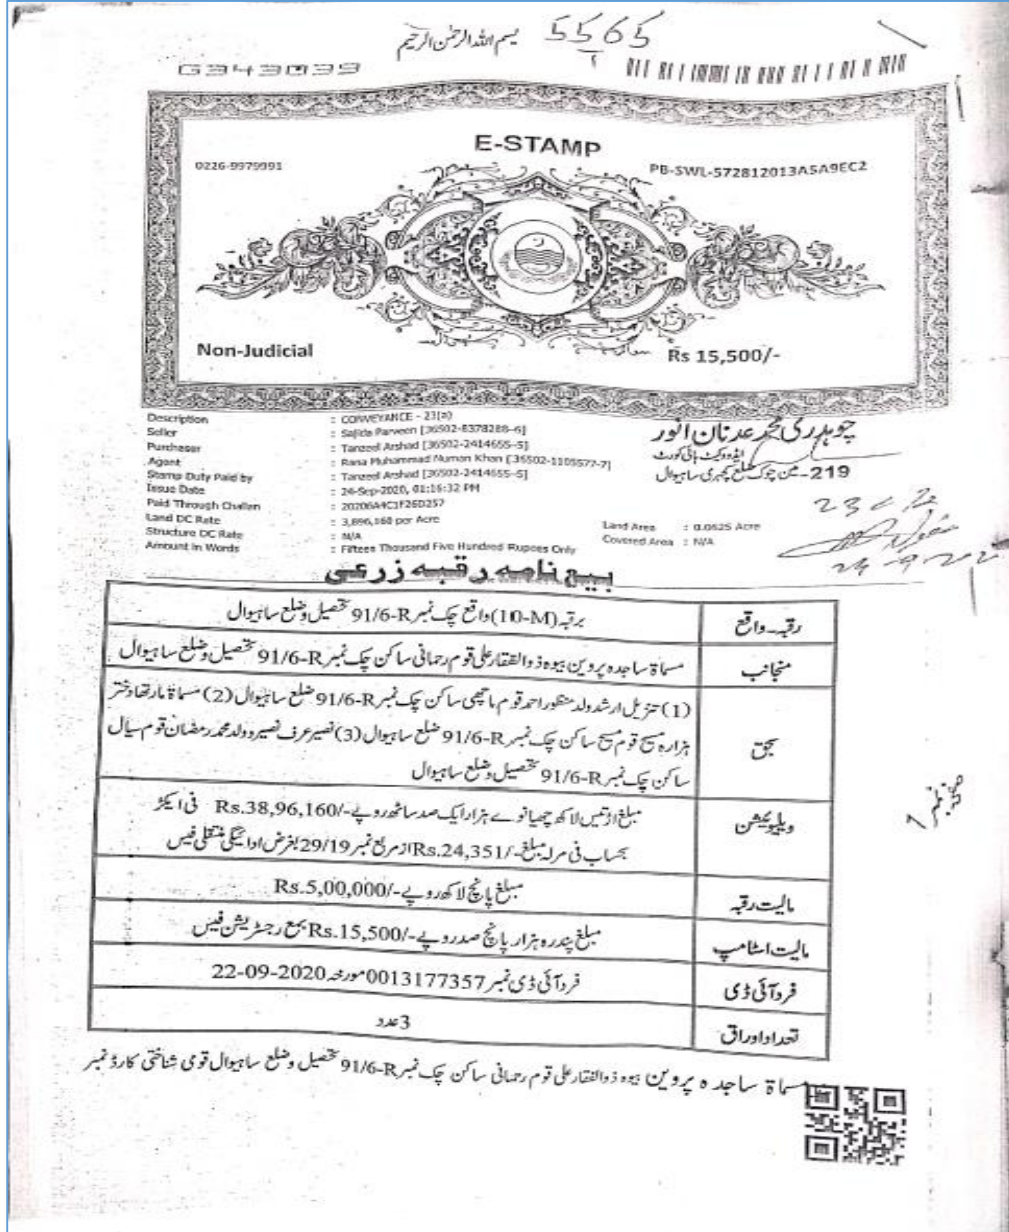 بسم اللہ الرحمٰن الرحیم
5565
G343039
E-STAMP
0226-9979991
PB-SWL-572812013A5A9EC2
Non-Judicial
Rs 15,500/-
Description : CONVEYANCE - 23(a)
Seller : Sajida Parveen [36502-8378288-6]
Purchaser : Tanzeel Arshad [36502-2414655-5]
Agent : Rana Muhammad Numan Khan [36502-1105577-7]
Stamp Duty Paid by : Tanzeel Arshad [36502-2414655-5]
Issue Date : 24-Sep-2020, 01:16:32 PM
Paid Through Challan : 20206A4C1F26D257
Land DC Rate : 3,896,160 per Acre
Land Area : 0.0625 Acre
Structure DC Rate : N/A
Covered Area : N/A
Amount in Words : Fifteen Thousand Five Hundred Rupees Only
چوہدری محمد عدنان انور
ایڈووکیٹ ہائی کورٹ
219-مین چوک ضلع کچہری ساہیوال
بیع نامہ رقبہ زرعی
رقبہ۔واقع
برقبہ(10-M)واقع چک نمبر91/6-R تحصیل وضلع ساہیوال
منجانب
مسماۃ ساجدہ پروین بیوہ ذوالفقار علی قوم رحمانی ساکن چک نمبر91/6-R تحصیل وضلع ساہیوال
بحق
(1)تنزیل ارشد ولد منظور احمد قوم ماچھی ساکن چک نمبر91/6-R ضلع ساہیوال(2)مسماۃ مارتھا دختر
ہزارہ مسیح قوم مسیح ساکن چک نمبر91/6-R ضلع ساہیوال(3)نصیر عرف نصیرو ولد محمد رمضان قوم سیال
ساکن چک نمبر91/6-R تحصیل وضلع ساہیوال
ویلیوئیشن
مبلغ اڑتیس لاکھ چھیانوے ہزار ایک صد ساٹھ روپے-/Rs.38,96,160 فی ایکڑ
بحساب فی مرلہ مبلغ-/Rs.24,351از مربع نمبر29/19بغرض ادائیگی منتقلی فیس
مالیت رقبہ
مبلغ پانچ لاکھ روپے-/Rs.5,00,000
مالیت اسٹامپ
مبلغ پندرہ ہزار پانچ صد روپے-/Rs.15,500 بمع رجسٹریشن فیس
فرد آئی ڈی
فرد آئی ڈی نمبر0013177357مورخہ22-09-2020
تعداد اوراق
3عدد
مسماۃ ساجدہ پروین بیوہ ذوالفقار علی قوم رحمانی ساکن چک نمبر91/6-R تحصیل وضلع ساہیوال قومی شناختی کارڈ نمبر